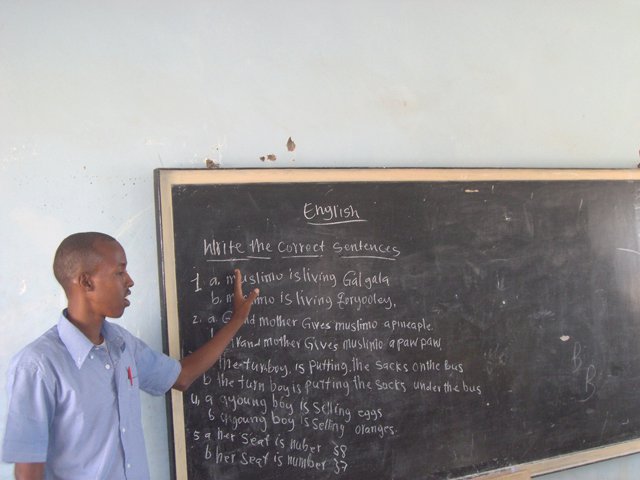 English
Write the correct sentences
1. a. muslimo is living Galgala
b. muslimo is living Zoryooley,
2. a Grand mother Gives muslimo a pineaple.
Grand mother Gives muslimo a paw paw
the turnboy, is putting the sacks on the bus
b the turn boy is putting the socks under the bus
4, a a young boy is selling eggs
b a young boy is selling oranges.
5 a her seat is nuber 38
b her seat is number 37
B
B